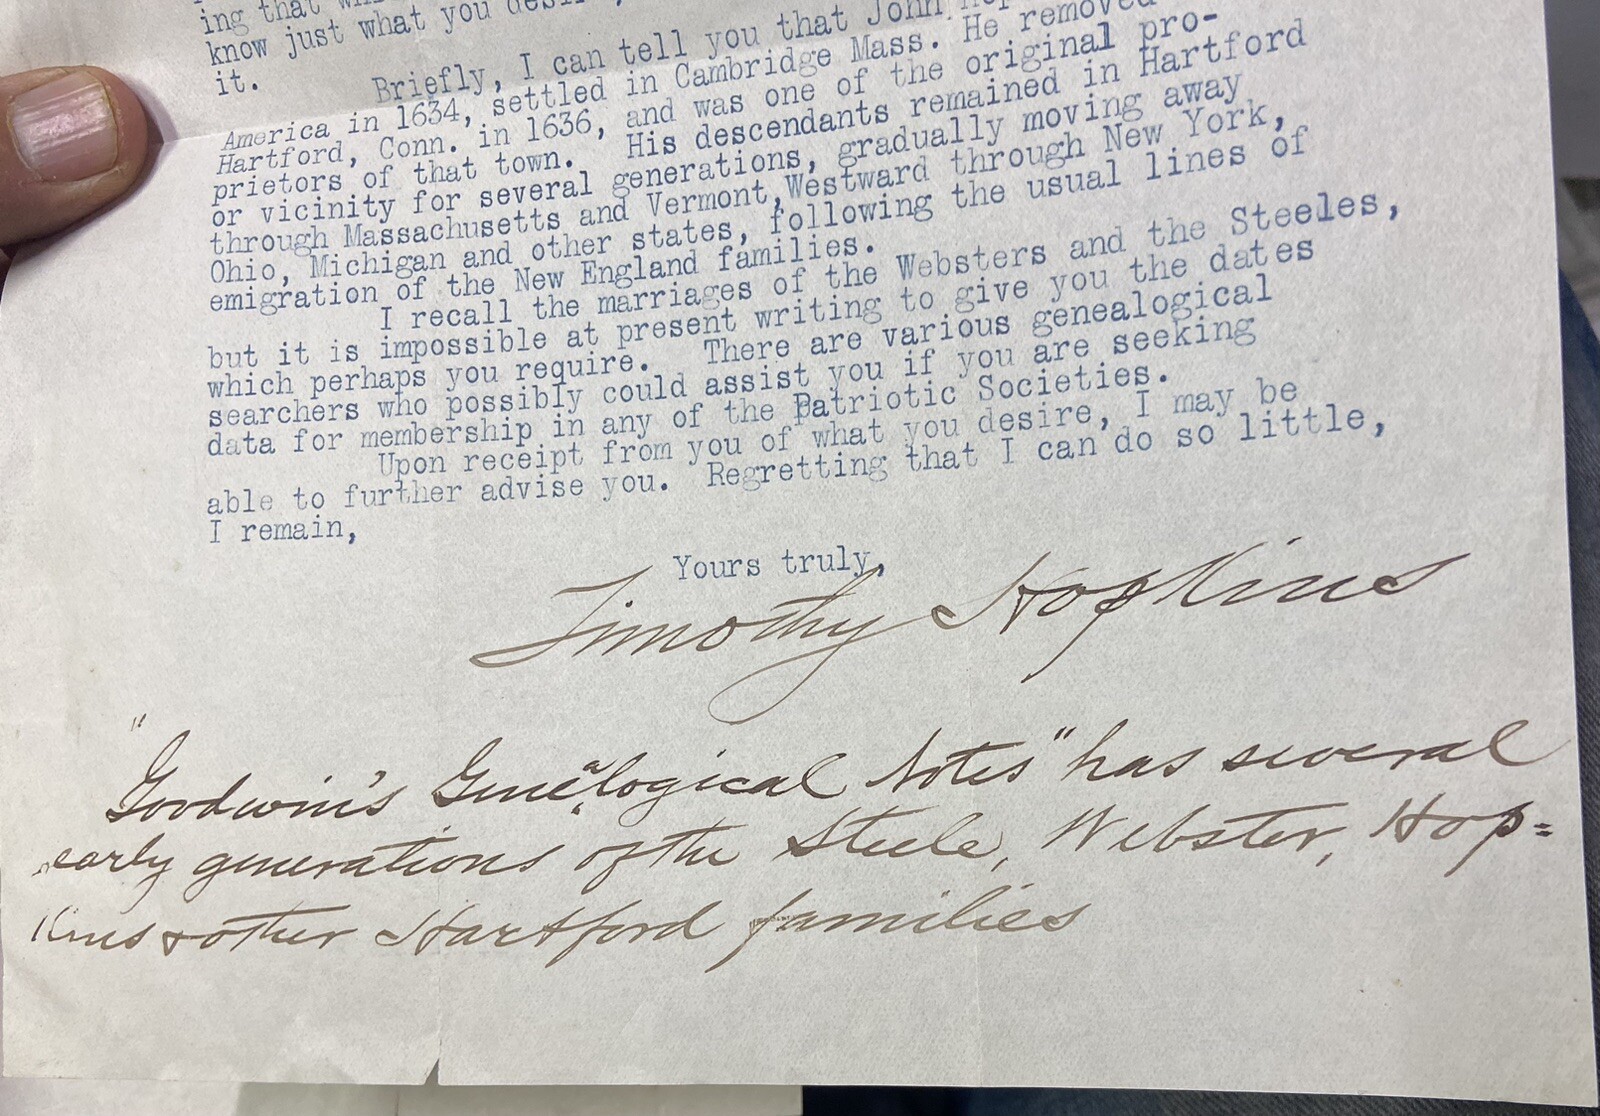 ing that
know just what you
it.
Briefly, I can tell you that John
America in 1634, settled in Cambridge Mass. He removed
Hartford, Conn. in 1636, and was one of the original pro-
prietors of that town. His descendants remained in Hartford
or vicinity for several generations, gradually moving away
through Massachusetts and Vermont, Westward through New York,
Ohio, Michigan and other states, following the usual lines of
emigration of the New England families.
I recall the marriages of the Websters and the Steeles,
but it is impossible at present writing to give you the dates
which perhaps you require. There are various genealogical
searchers who possibly could assist you if you are seeking
data for membership in any of the Patriotic Societies.
Upon receipt from you of what you desire, I may be
able to further advise you. Regretting that I can do so little,
I remain,
Yours truly,
Timothy Hopkins
"Goodwin's Genealogical Notes" has several
early generations of the Steele, Webster, Hop=
kins & other Hartford families